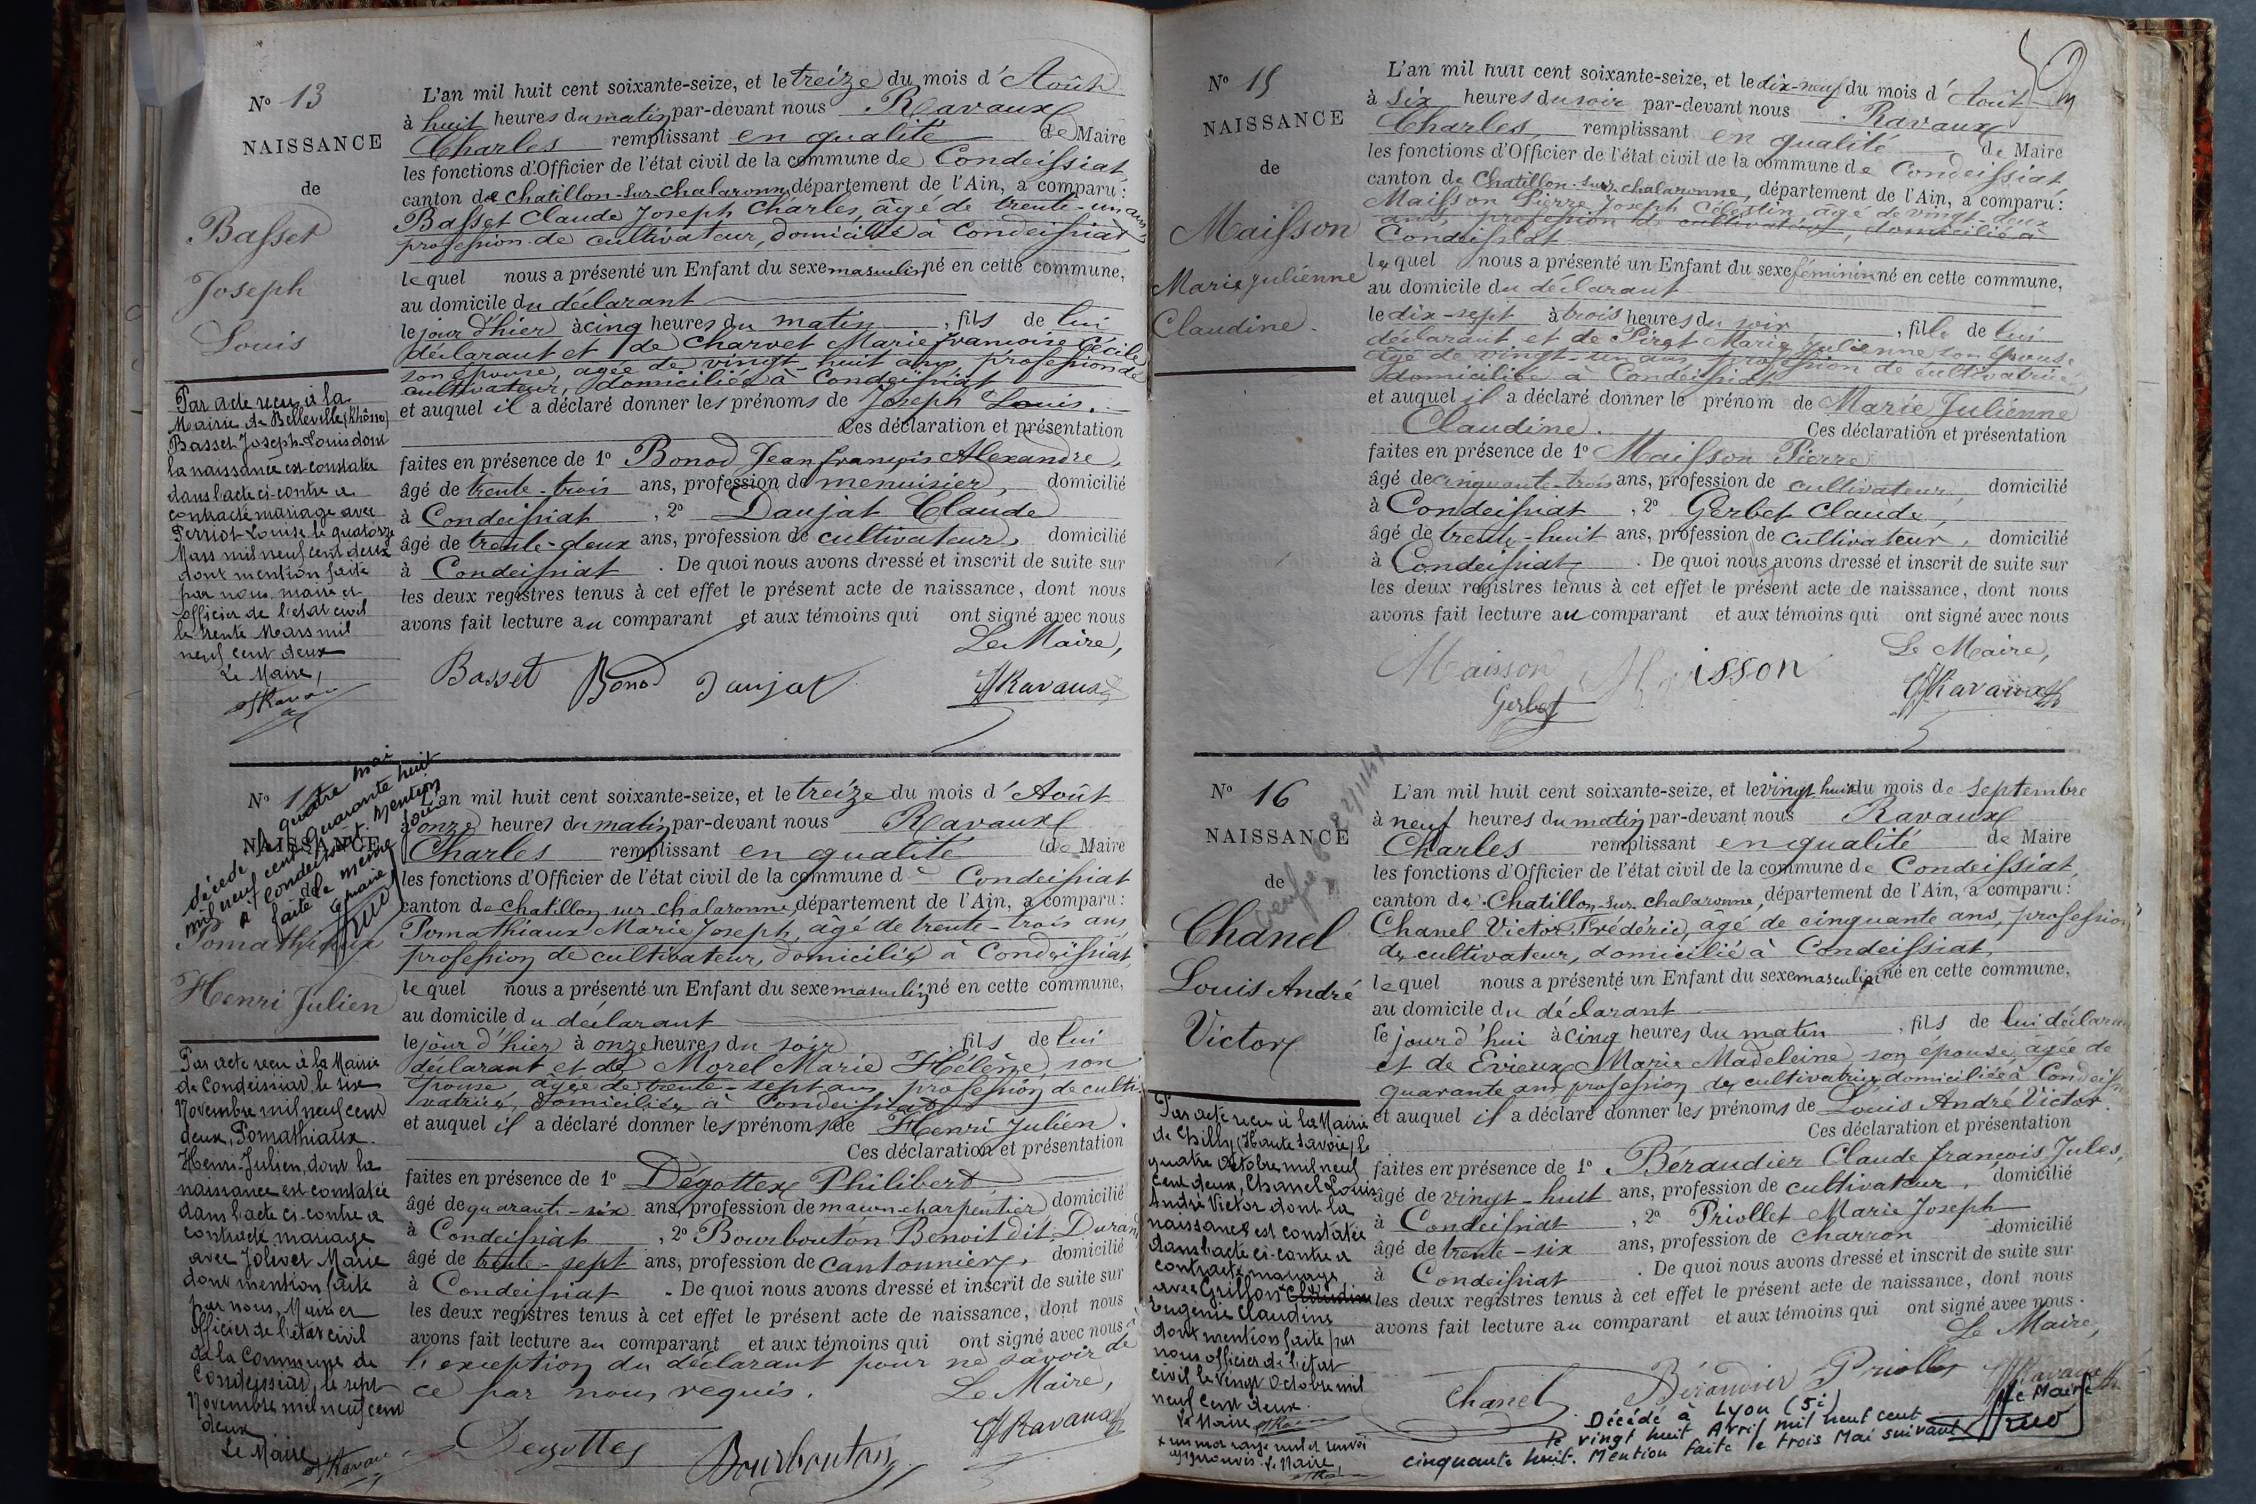 N° 13
NAISSANCE
de
Basset
Joseph
Louis
Par acte reçu à la
Mairie de Belleville (Rhône)
Basset Joseph-Louis dont
la naissance est constatée
dans l'acte ci-contre a
contracté mariage avec
Perriot Louise le quatorze
Mars mil neuf cent deux
dont mention faite
par nous, maire et
officier de l'état civil
le trente Mars mil
neuf cent deux
Le Maire,
Ravaux
L'an mil huit cent soixante-seize, et le treize du mois d'Août
à huit heures du matin par-devant nous Ravaux
Charles remplissant en qualité de Maire
les fonctions d'Officier de l'état civil de la commune de Condeissiat,
canton de Chatillon-sur-Chalaronne, département de l'Ain, a comparu:
Basset Claude Joseph Charles, âgé de trente-un ans,
profession de cultivateur, domicilié à Condeissiat
lequel nous a présenté un Enfant du sexe masculin né en cette commune,
au domicile du déclarant
le jour d'hier à cinq heures du matin, fils de lui
déclarant et de Charvet Marie françoise Cécile
son épouse, agée de vingt-huit ans, profession de
cultivateur, domiciliée à Condeissiat
et auquel il a déclaré donner les prénoms de Joseph Louis.
Ces déclaration et présentation
faites en présence de 1° Bonod Jean françois Alexandre,
âgé de trente-trois ans, profession de menuisier, domicilié
à Condeissiat, 2° Daujat Claude
âgé de trente-deux ans, profession de cultivateur, domicilié
à Condeissiat. De quoi nous avons dressé et inscrit de suite sur
les deux registres tenus à cet effet le présent acte de naissance, dont nous
avons fait lecture au comparant et aux témoins qui ont signé avec nous
Le Maire,
Basset Bonod Daujat Ravaux
N° 1
NAISSANCE
de
décédé le quatre mai
mil neuf cent quarante huit
à Condeissiat. Mention
faite le même jour
Le maire
Pomathiaux
Henri Julien
Par acte reçu à la Mairie
de Condeissiat, le six
Novembre mil neuf cent
deux, Pomathiaux
Henri-Julien, dont la
naissance est constatée
dans l'acte ci-contre a
contracté mariage
avec Jolivet Marie
dont mention faite
par nous, Maire et
officier de l'état civil
de la Commune de
Condeissiat, le sept
Novembre mil neuf cent
deux
Le Maire Ravaux
L'an mil huit cent soixante-seize, et le treize du mois d'Août
à onze heures du matin par-devant nous Ravaux
Charles remplissant en qualité de Maire
les fonctions d'Officier de l'état civil de la commune de Condeissiat
canton de Chatillon sur Chalaronne, département de l'Ain, a comparu:
Pomathiaux Marie Joseph, âgé de trente-trois ans,
profession de cultivateur, domicilié à Condeissiat,
lequel nous a présenté un Enfant du sexe masculin né en cette commune,
au domicile du déclarant
le jour d'hier à onze heures du soir, fils de lui
déclarant et de Morel Marie Hélène, son
épouse, âgée de trente-sept ans, profession de culti-
vatrice, domiciliée à Condeissiat
et auquel il a déclaré donner les prénoms de Henri Julien.
Ces déclaration et présentation
faites en présence de 1° Dégottex Philibert
âgé de quarante-six ans, profession de maçon-charpentier domicilié
à Condeissiat, 2° Bourbouton Benoit dit Durand
âgé de trente-sept ans, profession de cantonnier, domicilié
à Condeissiat. De quoi nous avons dressé et inscrit de suite sur
les deux registres tenus à cet effet le présent acte de naissance, dont nous
avons fait lecture au comparant et aux témoins qui ont signé avec nous à
l'exception du déclarant pour ne savoir de
ce par nous requis. Le Maire,
Degottex Bourbouton Ravaux
50
N° 15
NAISSANCE
de
Maisson
Marie Julienne
Claudine.
L'an mil huit cent soixante-seize, et le dix-neuf du mois d'Août
à six heures du soir par-devant nous Ravaux
Charles remplissant en qualité de Maire
les fonctions d'Officier de l'état civil de la commune de Condeissiat,
canton de Chatillon-sur-chalaronne, département de l'Ain, a comparu:
Maisson Pierre Joseph Célestin, âgé de vingt-deux
ans, profession de cultivateur, domicilié à
Condeissiat
lequel nous a présenté un Enfant du sexe féminin né en cette commune,
au domicile du déclarant
le dix-sept à trois heures du soir, fille de lui
déclarant et de Pirat Marie Julienne son épouse
âgé de vingt-un ans, profession de cultivatrice
domiciliée à Condeissiat
et auquel il a déclaré donner le prénom de Marie Julienne
Claudine. Ces déclaration et présentation
faites en présence de 1° Maisson Pierre
âgé de cinquante-trois ans, profession de cultivateur, domicilié
à Condeissiat, 2° Gerbet Claude,
âgé de trente-huit ans, profession de cultivateur, domicilié
à Condeissiat. De quoi nous avons dressé et inscrit de suite sur
les deux registres tenus à cet effet le présent acte de naissance, dont nous
avons fait lecture au comparant et aux témoins qui ont signé avec nous
Le Maire,
Maisson Maisson Ravaux
Gerbet
N° 16
NAISSANCE
de
Chanel
Louis André
Victor
Par acte reçu à la Mairie
de Chilly (Haute Savoie) le
quatre Octobre mil neuf
cent deux, Chanel Louis
André Victor dont la
naissance est constatée
dans l'acte ci-contre a
contracté mariage
avec Grillon Claudine
Eugénie Claudine
dont mention faite par
nous officier de l'état
civil le vingt Octobre mil
neuf cent deux.
Le Maire Ravaux
x un mot rayé nul et renvoi
approuvés. Le Maire,
L'an mil huit cent soixante-seize, et le vingt huit du mois de septembre
à neuf heures du matin par-devant nous Ravaux
Charles remplissant en qualité de Maire
les fonctions d'Officier de l'état civil de la commune de Condeissiat,
canton de Chatillon-sur-chalaronne, département de l'Ain, a comparu:
Chanel Victor Frédéric, âgé de cinquante ans, profession
de cultivateur, domicilié à Condeissiat,
lequel nous a présenté un Enfant du sexe masculin né en cette commune,
au domicile du déclarant
le jour d'hui à cinq heures du matin, fils de lui déclarant
et de Evieux Marie Madeleine, son épouse, agée de
quarante ans, profession de cultivatrice domiciliée à Condeiss
et auquel il a déclaré donner les prénoms de Louis André Victor.
Ces déclaration et présentation
faites en présence de 1° Béraudier Claude françois Jules,
âgé de vingt-huit ans, profession de cultivateur, domicilié
à Condeissiat, 2° Priollet Marie Joseph
âgé de trente-six ans, profession de charron domicilié
à Condeissiat. De quoi nous avons dressé et inscrit de suite sur
les deux registres tenus à cet effet le présent acte de naissance, dont nous
avons fait lecture au comparant et aux témoins qui ont signé avec nous.
Le Maire,
Chanel Béraudier Priollet Ravaux
Décédé à Lyon (5è) Le Maire
le vingt huit Avril mil neuf cent
cinquante huit. Mention faite le trois Mai suivant